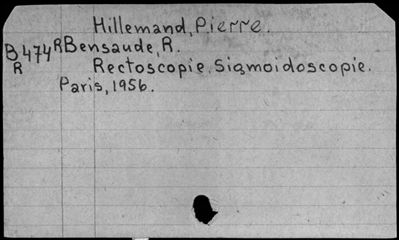 Hillemand, Pierre.
B474R Bensaude, R.
R Rectoscopie. Sigmoidoscopie.
Paris, 1956.